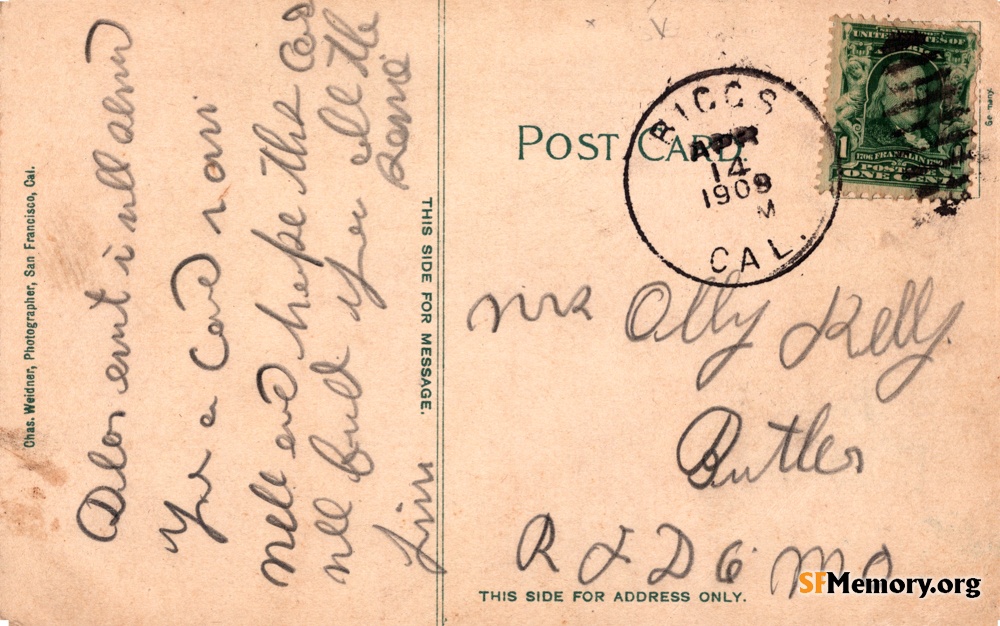 Chas. Weidner, Photographer, San Francisco, Cal.
aunt i will
you a Card i am
well and hope the Card
will find you all the
Same
Jim
THIS SIDE FOR MESSAGE.
POST CARD
BIGGS
APR
14
M
CAL.
1
1706 FRANKLIN 1790
POSTAGE
ONE CENT
Germany.
Mrs Olly Kelly.
Butler
R F D 6 Mo
THIS SIDE FOR ADDRESS ONLY.
SFMemory.org